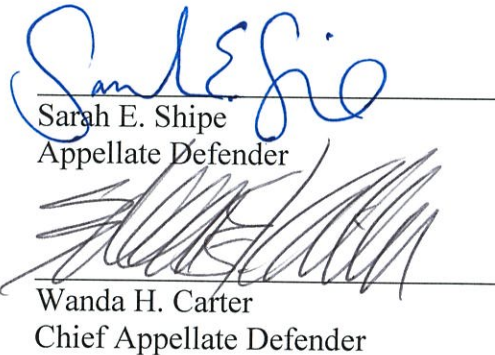 Sarah E. Shipe
Appellate Defender
Wanda H. Carter
Chief Appellate Defender